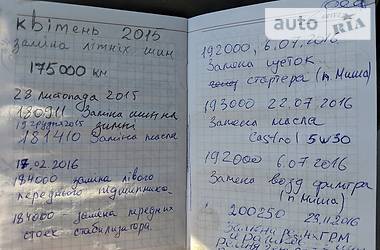 квітень 2015
заміна літніх шин
175000 км
28 листопада 2015
180911 Заміна шин на
зимні
181410 Заміна масла
17.02.2016
184000 заміна лівого
переднього підшипника.
184000 заміна передних
стоек стабилизатора.
192000, 6.07.2016
Замена щеток
стартера (п. Миша)
193000 22.07.2016
Замена масла
Castrol 5w30
192000 6.07.2016
Замена возд фильтра
(п Миша)
200250 29.11.2016
Замена ГРМ
auto RIA